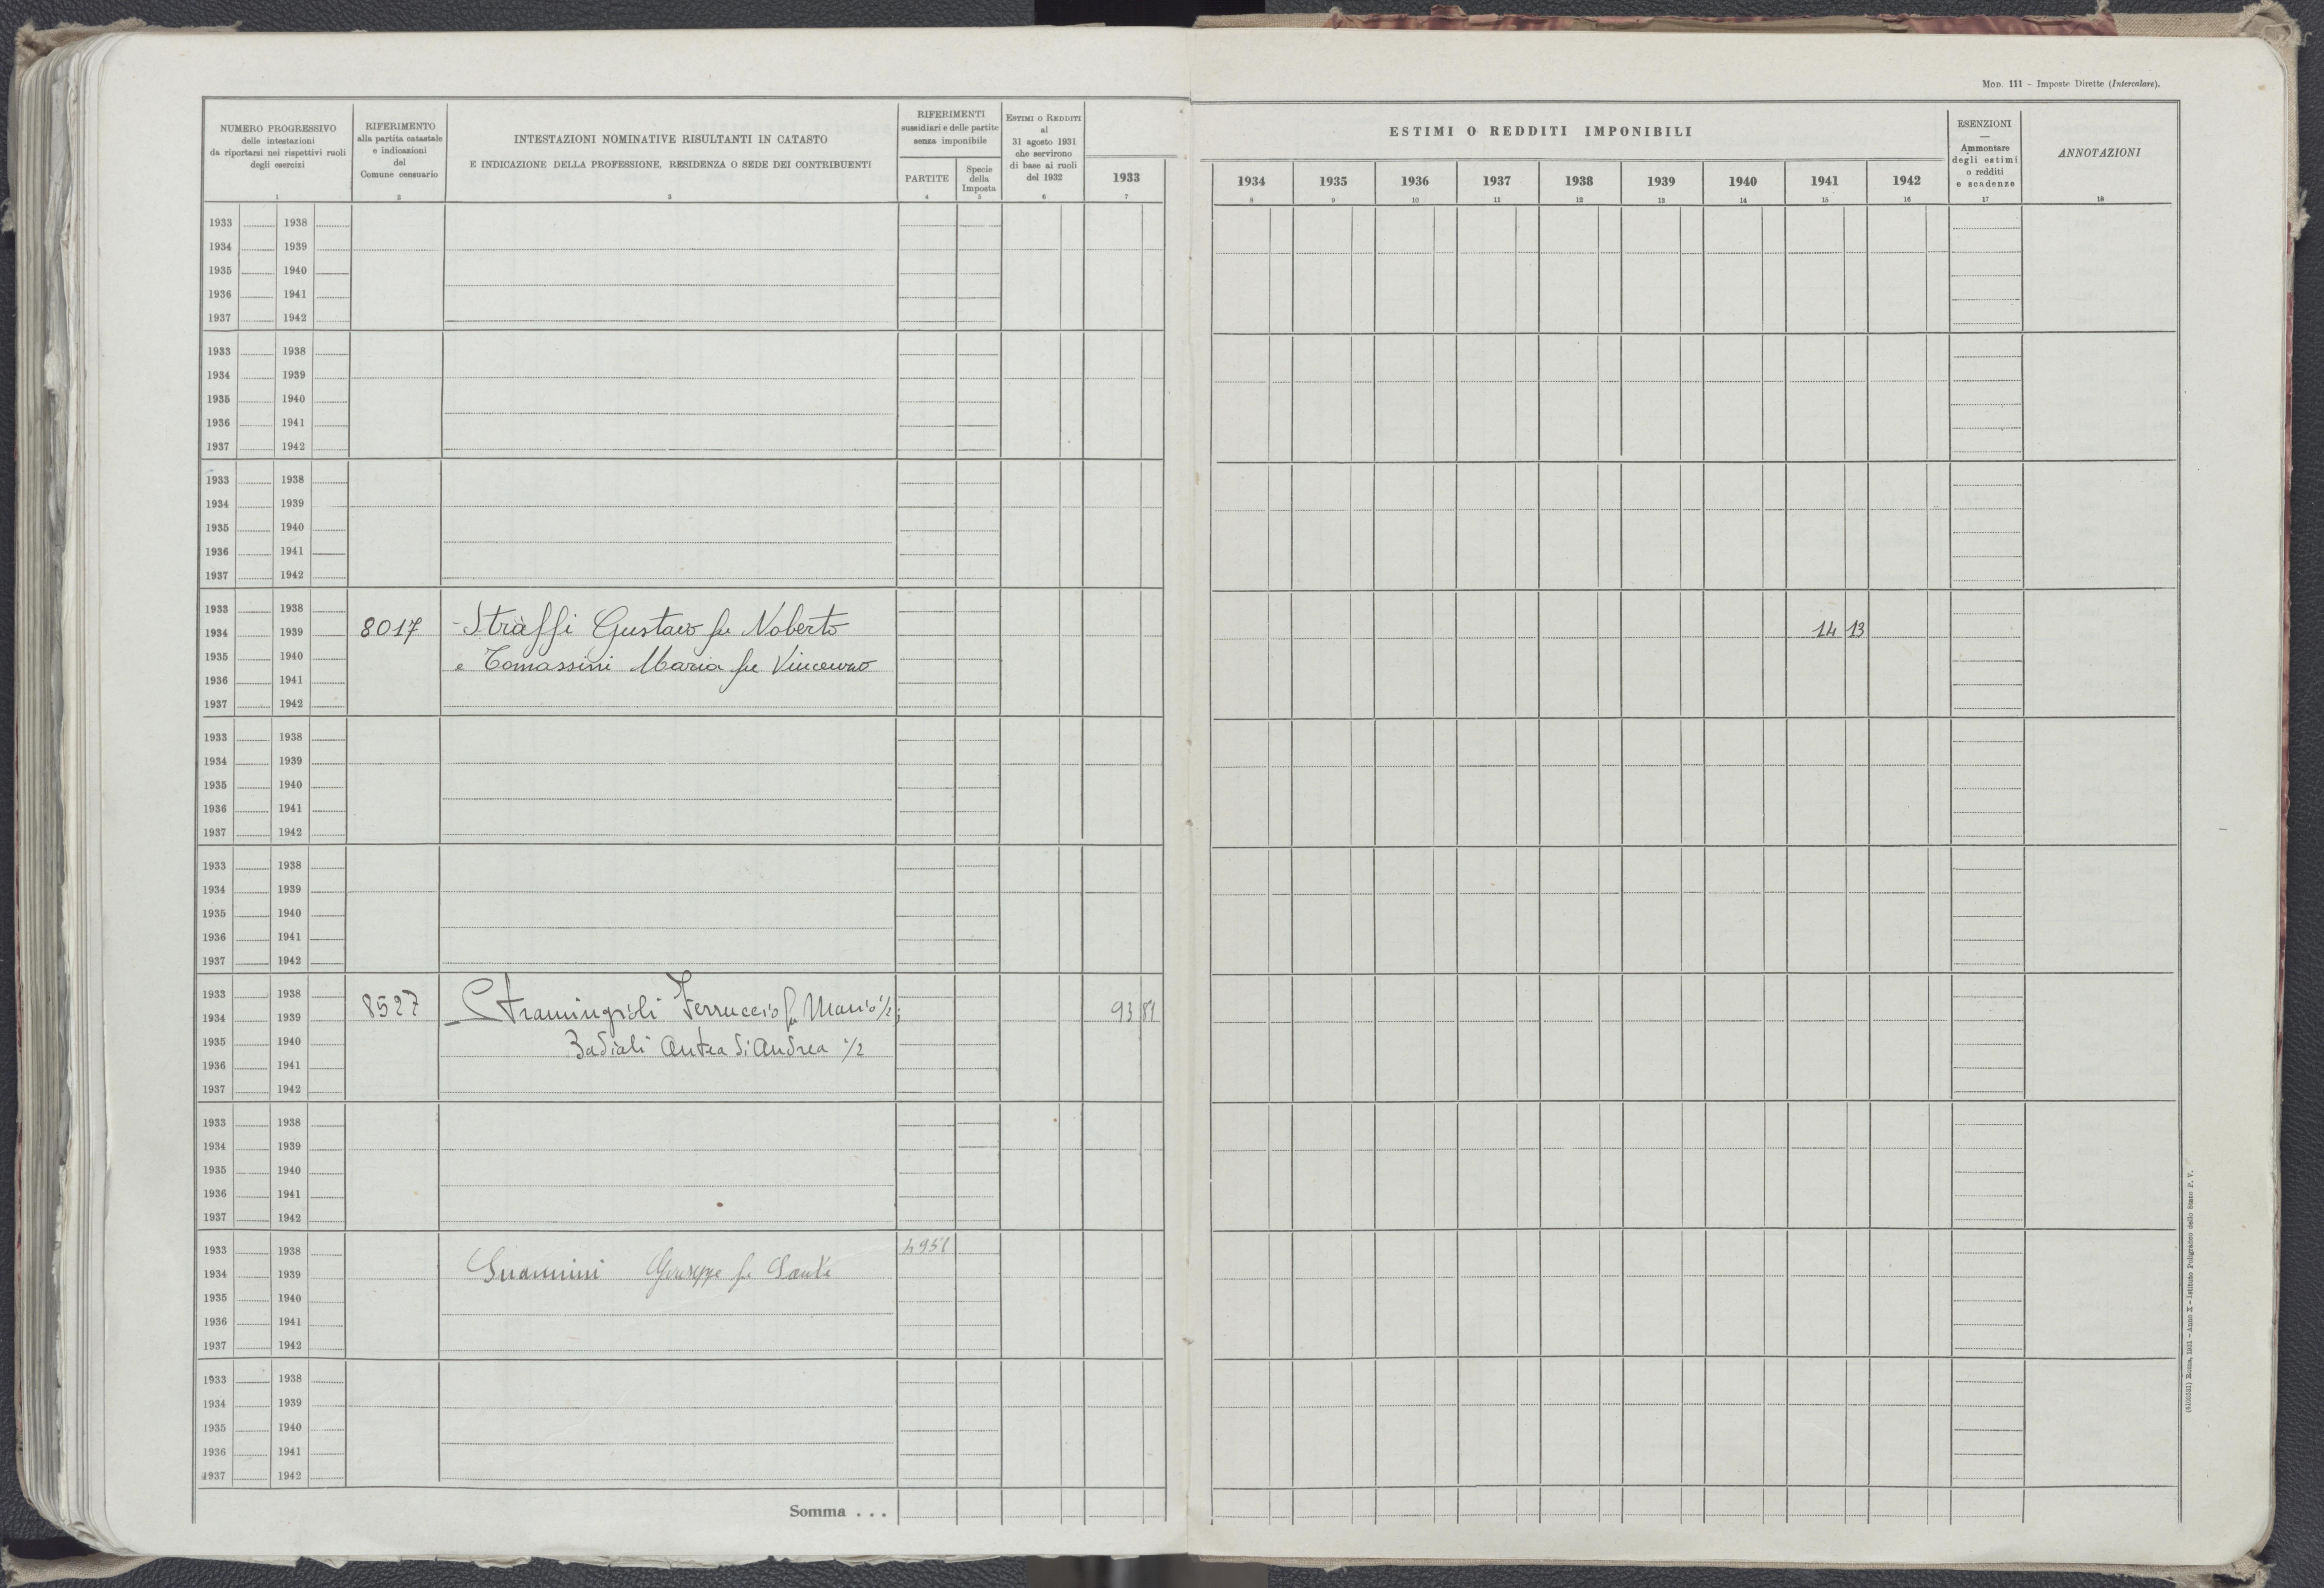 Mod. 111 - Imposte Dirette (Intercalare).
NUMERO PROGRESSIVO
delle intestazioni
da riportarsi nei rispettivi ruoli
degli esercizi
1
RIFERIMENTO
alla partita catastale
e indicazioni
del
Comune censuario
2
INTESTAZIONI NOMINATIVE RISULTANTI IN CATASTO
E INDICAZIONE DELLA PROFESSIONE, RESIDENZA O SEDE DEI CONTRIBUENTI
3
RIFERIMENTI
sussidiari e delle partite
senza imponibile
PARTITE
4
Specie
della
Imposta
5
Estimi o Redditi
al
31 agosto 1931
che servirono
di base ai ruoli
del 1932
6
1933
7
ESTIMI O REDDITI IMPONIBILI
1934 1935 1936 1937 1938 1939 1940 1941 1942
8 9 10 11 12 13 14 15 16
ESENZIONI
Ammontare
degli estimi
o redditi
e scadenze
17
ANNOTAZIONI
18
1933 1938
1934 1939
1935 1940
1936 1941
1937 1942
1933 1938
1934 1939
1935 1940
1936 1941
1937 1942
1933 1938
1934 1939
1935 1940
1936 1941
1937 1942
1933 1938
1934 1939 8017 Straffi Gustavo fu Noberto 14 13
1935 1940 e Tomassini Maria fu Vincenzo
1936 1941
1937 1942
1933 1938
1934 1939
1935 1940
1936 1941
1937 1942
1933 1938
1934 1939
1935 1940
1936 1941
1937 1942
1933 1938
1934 1939 8527 Stramigioli Ferruccio fu Mario 1/2; 93 81
1935 1940 Badiali Antea di Andrea 1/2
1936 1941
1937 1942
1933 1938
1934 1939
1935 1940
1936 1941
1937 1942
1933 1938 4951
1934 1939 Giuseppe fu Sante
1935 1940
1936 1941
1937 1942
1933 1938
1934 1939
1935 1940
1936 1941
1937 1942
Somma . . .
Roma, 1931 - Anno X - Istituto Poligrafico dello Stato P. V.